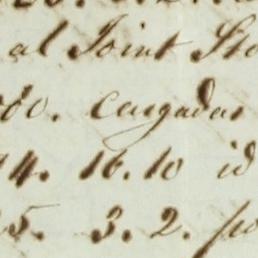 al Joint Sto
00. cargadas
14. 16. 10 id
25. 3. 2. po